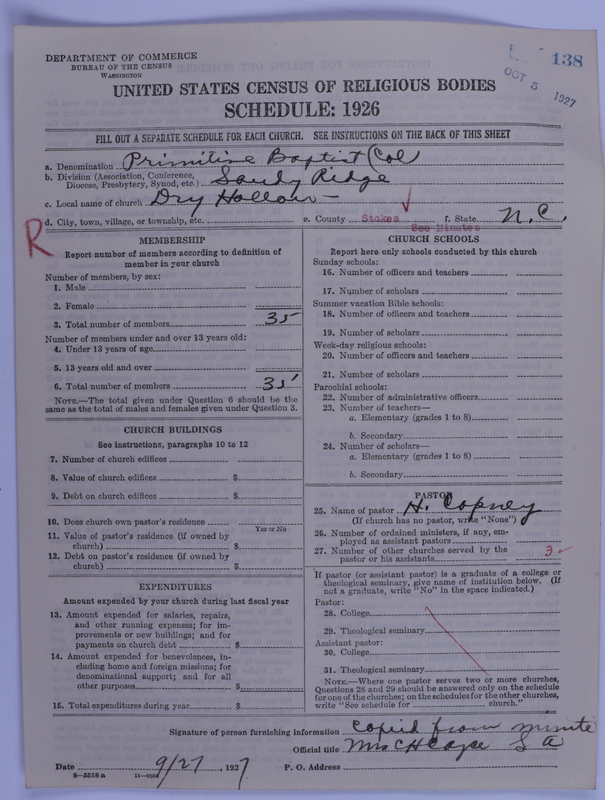 DEPARTMENT OF COMMERCE
BUREAU OF THE CENSUS
WASHINGTON
138
OCT 5 1927
UNITED STATES CENSUS OF RELIGIOUS BODIES
SCHEDULE: 1926
FILL OUT A SEPARATE SCHEDULE FOR EACH CHURCH. SEE INSTRUCTIONS ON THE BACK OF THIS SHEET
a. Denomination Primitive Baptist (Col
b. Division (Association, Conference, Diocese, Presbytery, Synod, etc.) Sandy Ridge
c. Local name of church Dry Hollow
d. City, town, village, or township, etc. e. County Stokes f. State N.C.
See Minutes
R
MEMBERSHIP
Report number of members according to definition of
member in your church
Number of members, by sex:
1. Male
2. Female
3. Total number of members 35
Number of members under and over 13 years old:
4. Under 13 years of age
5. 13 years old and over
6. Total number of members 35
NOTE.—The total given under Question 6 should be the
same as the total of males and females given under Question 3.
CHURCH BUILDINGS
See instructions, paragraphs 10 to 12
7. Number of church edifices
8. Value of church edifices $
9. Debt on church edifices $
10. Does church own pastor's residence
Yes or No
11. Value of pastor's residence (if owned by
church) $
12. Debt on pastor's residence (if owned by
church) $
EXPENDITURES
Amount expended by your church during last fiscal year
13. Amount expended for salaries, repairs,
and other running expenses; for im-
provements or new buildings; and for
payments on church debt $
14. Amount expended for benevolences, in-
cluding home and foreign missions; for
denominational support; and for all
other purposes $
15. Total expenditures during year $
CHURCH SCHOOLS
Report here only schools conducted by this church
Sunday schools:
16. Number of officers and teachers
17. Number of scholars
Summer vacation Bible schools:
18. Number of officers and teachers
19. Number of scholars
Week-day religious schools:
20. Number of officers and teachers
21. Number of scholars
Parochial schools:
22. Number of administrative officers
23. Number of teachers—
a. Elementary (grades 1 to 8)
b. Secondary
24. Number of scholars—
a. Elementary (grades 1 to 8)
b. Secondary
PASTOR
25. Name of pastor H.
(If church has no pastor, write "None")
26. Number of ordained ministers, if any, em-
ployed as assistant pastors
27. Number of other churches served by the
pastor or his assistants 3
If pastor (or assistant pastor) is a graduate of a college or
theological seminary, give name of institution below. (If
not a graduate, write "No" in the space indicated.)
Pastor:
28. College
29. Theological seminary
Assistant pastor:
30. College
31. Theological seminary
NOTE.—Where one pastor serves two or more churches,
Questions 28 and 29 should be answered only on the schedule
for one of the churches; on the schedules for the other churches,
write "See schedule for church."
Signature of person furnishing information Copied from minute
Official title Mrs C H S A
Date 9/27, 1927 P. O. Address
8-5518 a